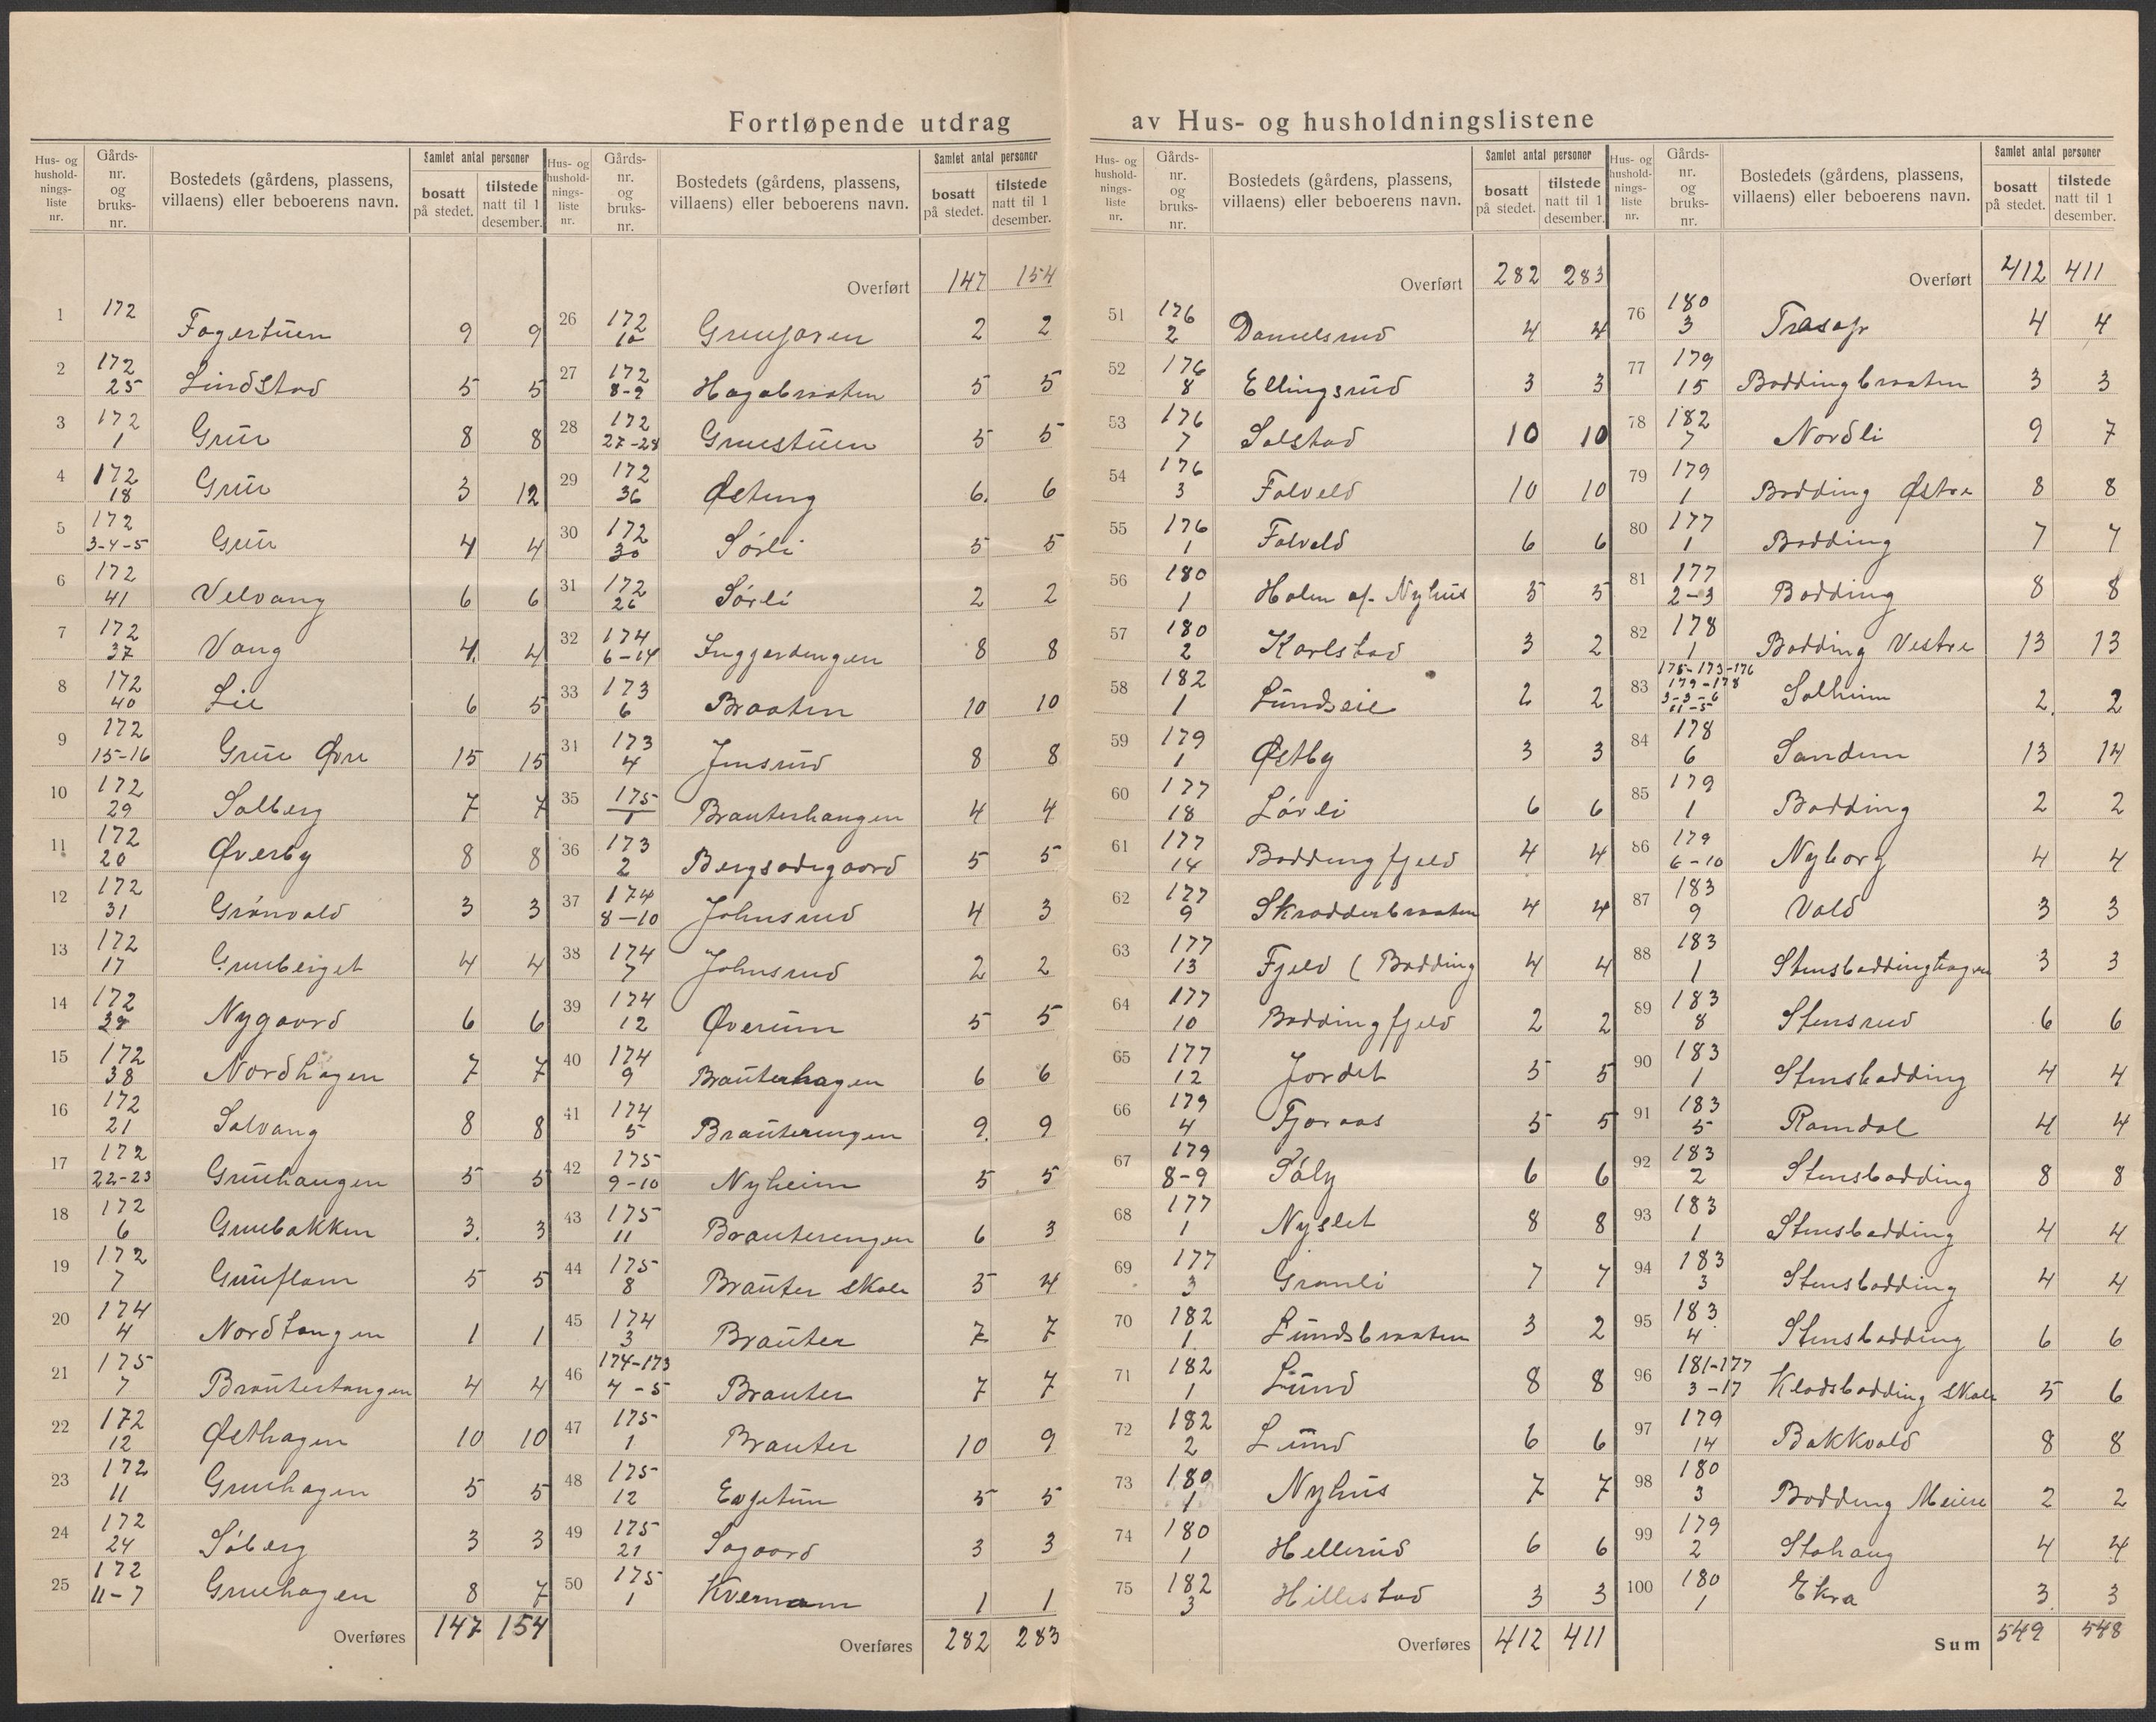 Fortløpende utdrag av Hus- og husholdningslistene
Hus- og husholdningsliste nr. Gårds-nr. og bruks-nr. Bostedets (gårdens, plassens, villaens) eller beboerens navn. Samlet antal personer bosatt på stedet. tilstede natt til 1 desember.
1 172 Fagertun 9 9
2 172 25 Lindstad 5 5
3 172 1 Grue 8 8
4 172 18 Grue 3 12
5 172 3-4-5 Grue 4 4
6 172 41 Velvang 6 6
7 172 37 Vang 4 4
8 172 40 Lie 6 5
9 172 15-16 Grue Øvre 15 15
10 172 29 Solberg 7 7
11 172 20 Øverby 8 8
12 172 31 Grønvold 3 3
13 172 17 Grueberget 4 4
14 172 Nygaard 6 6
15 172 38 Nordhagen 7 7
16 172 21 Solvang 8 8
17 172 22-23 Gruehaugen 5 5
18 172 6 Gruebakken 3 3
19 172 7 Grueflam 5 5
20 174 4 Nordtangen 1 1
21 175 7 Brautertangen 4 4
22 172 12 Østhagen 10 10
23 172 11 Gruehagen 5 5
24 172 24 Søberg 3 3
25 172 11-7 Gruehagen 8 7
Overføres 147 154
Hus- og husholdningsliste nr. Gårds-nr. og bruks-nr. Bostedets (gårdens, plassens, villaens) eller beboerens navn. Samlet antal personer bosatt på stedet. tilstede natt til 1 desember.
Overført 147 154
26 172 10 2 2
27 172 8-9 Hagabraaten 5 5
28 172 27-28 Gruestuen 5 5
29 172 36 Østeng 6 6
30 172 30 Sørli 5 5
31 172 26 Sørli 2 2
32 174 6-14 Inggjerdengen 8 8
33 173 6 Braaten 10 10
34 173 4 Jensrud 8 8
35 175 1 Brauterhaugen 4 4
36 173 2 Bergsødegaard 5 5
37 174 8-10 Johnsrud 4 3
38 174 7 Johnsrud 2 2
39 174 12 Øverum 5 5
40 174 9 Brauterhagen 6 6
41 174 5 Brauterengen 9 9
42 175 9-10 Nyheim 5 5
43 175 11 Brauterengen 6 3
44 175 8 Brauter skole 5 4
45 174 3 Brauter 7 7
46 174-173 4-5 Brauter 7 7
47 175 1 Brauter 10 9
48 175 12 Engetun 5 5
49 175 21 Sagaard 3 3
50 175 1 Kvernam 1 1
Overføres 282 283
Hus- og husholdningsliste nr. Gårds-nr. og bruks-nr. Bostedets (gårdens, plassens, villaens) eller beboerens navn. Samlet antal personer bosatt på stedet. tilstede natt til 1 desember.
Overført 282 283
51 176 2 Danielsrud 4 4
52 176 8 Ellingsrud 3 3
53 176 7 Solstad 10 10
54 176 3 Falveld 10 10
55 176 1 Falveld 6 6
56 180 1 Holm af. Nyhus 5 5
57 180 2 Karlstad 3 2
58 182 1 Lundseie 2 2
59 179 1 Østby 3 3
60 177 18 Løvli 6 6
61 177 14 Baddingfjeld 4 4
62 177 9 Skradderbraaten 4 4
63 177 13 Fjeld ( Badding 4 4
64 177 10 Baddingfjeld 2 2
65 177 12 Jordet 5 5
66 179 4 Fjoraas 5 5
67 179 8-9 Søly 6 6
68 177 1 Nyslet 8 8
69 177 3 Granli 7 7
70 182 1 Lundsbraaten 3 2
71 182 1 Lund 8 8
72 182 2 Lund 6 6
73 180 1 Nyhus 7 7
74 180 1 Hellerud 6 6
75 182 3 Hillestad 3 3
Overføres 412 411
Hus- og husholdningsliste nr. Gårds-nr. og bruks-nr. Bostedets (gårdens, plassens, villaens) eller beboerens navn. Samlet antal personer bosatt på stedet. tilstede natt til 1 desember.
Overført 412 411
76 180 3 4 4
77 179 15 Baddingbraaten 3 3
78 182 7 Nordli 9 7
79 179 1 Badding Østre 8 8
80 177 1 Badding 7 7
81 177 2-3 Badding 8 8
82 178 1 Badding Vestre 13 13
83 175-173-176 179-178 3-3-6 11-5 Solheim 2 2
84 178 6 Sandum 13 14
85 179 1 Badding 2 2
86 179 6-10 Nyborg 4 4
87 183 9 Vold 3 3
88 183 1 Stensbaddinghagen 3 3
89 183 8 Stensrud 6 6
90 183 1 Stensbadding 4 4
91 183 5 Ramdal 4 4
92 183 2 Stensbadding 8 8
93 183 1 Stensbadding 4 4
94 183 3 Stensbadding 4 4
95 183 4 Stensbadding 6 6
96 181-177 3-17 Kladsbadding skole 5 6
97 179 14 Bakkvold 8 8
98 180 3 Badding Meieri 2 2
99 179 2 Stohaug 4 4
100 180 1 Ekra 3 3
Sum 549 548